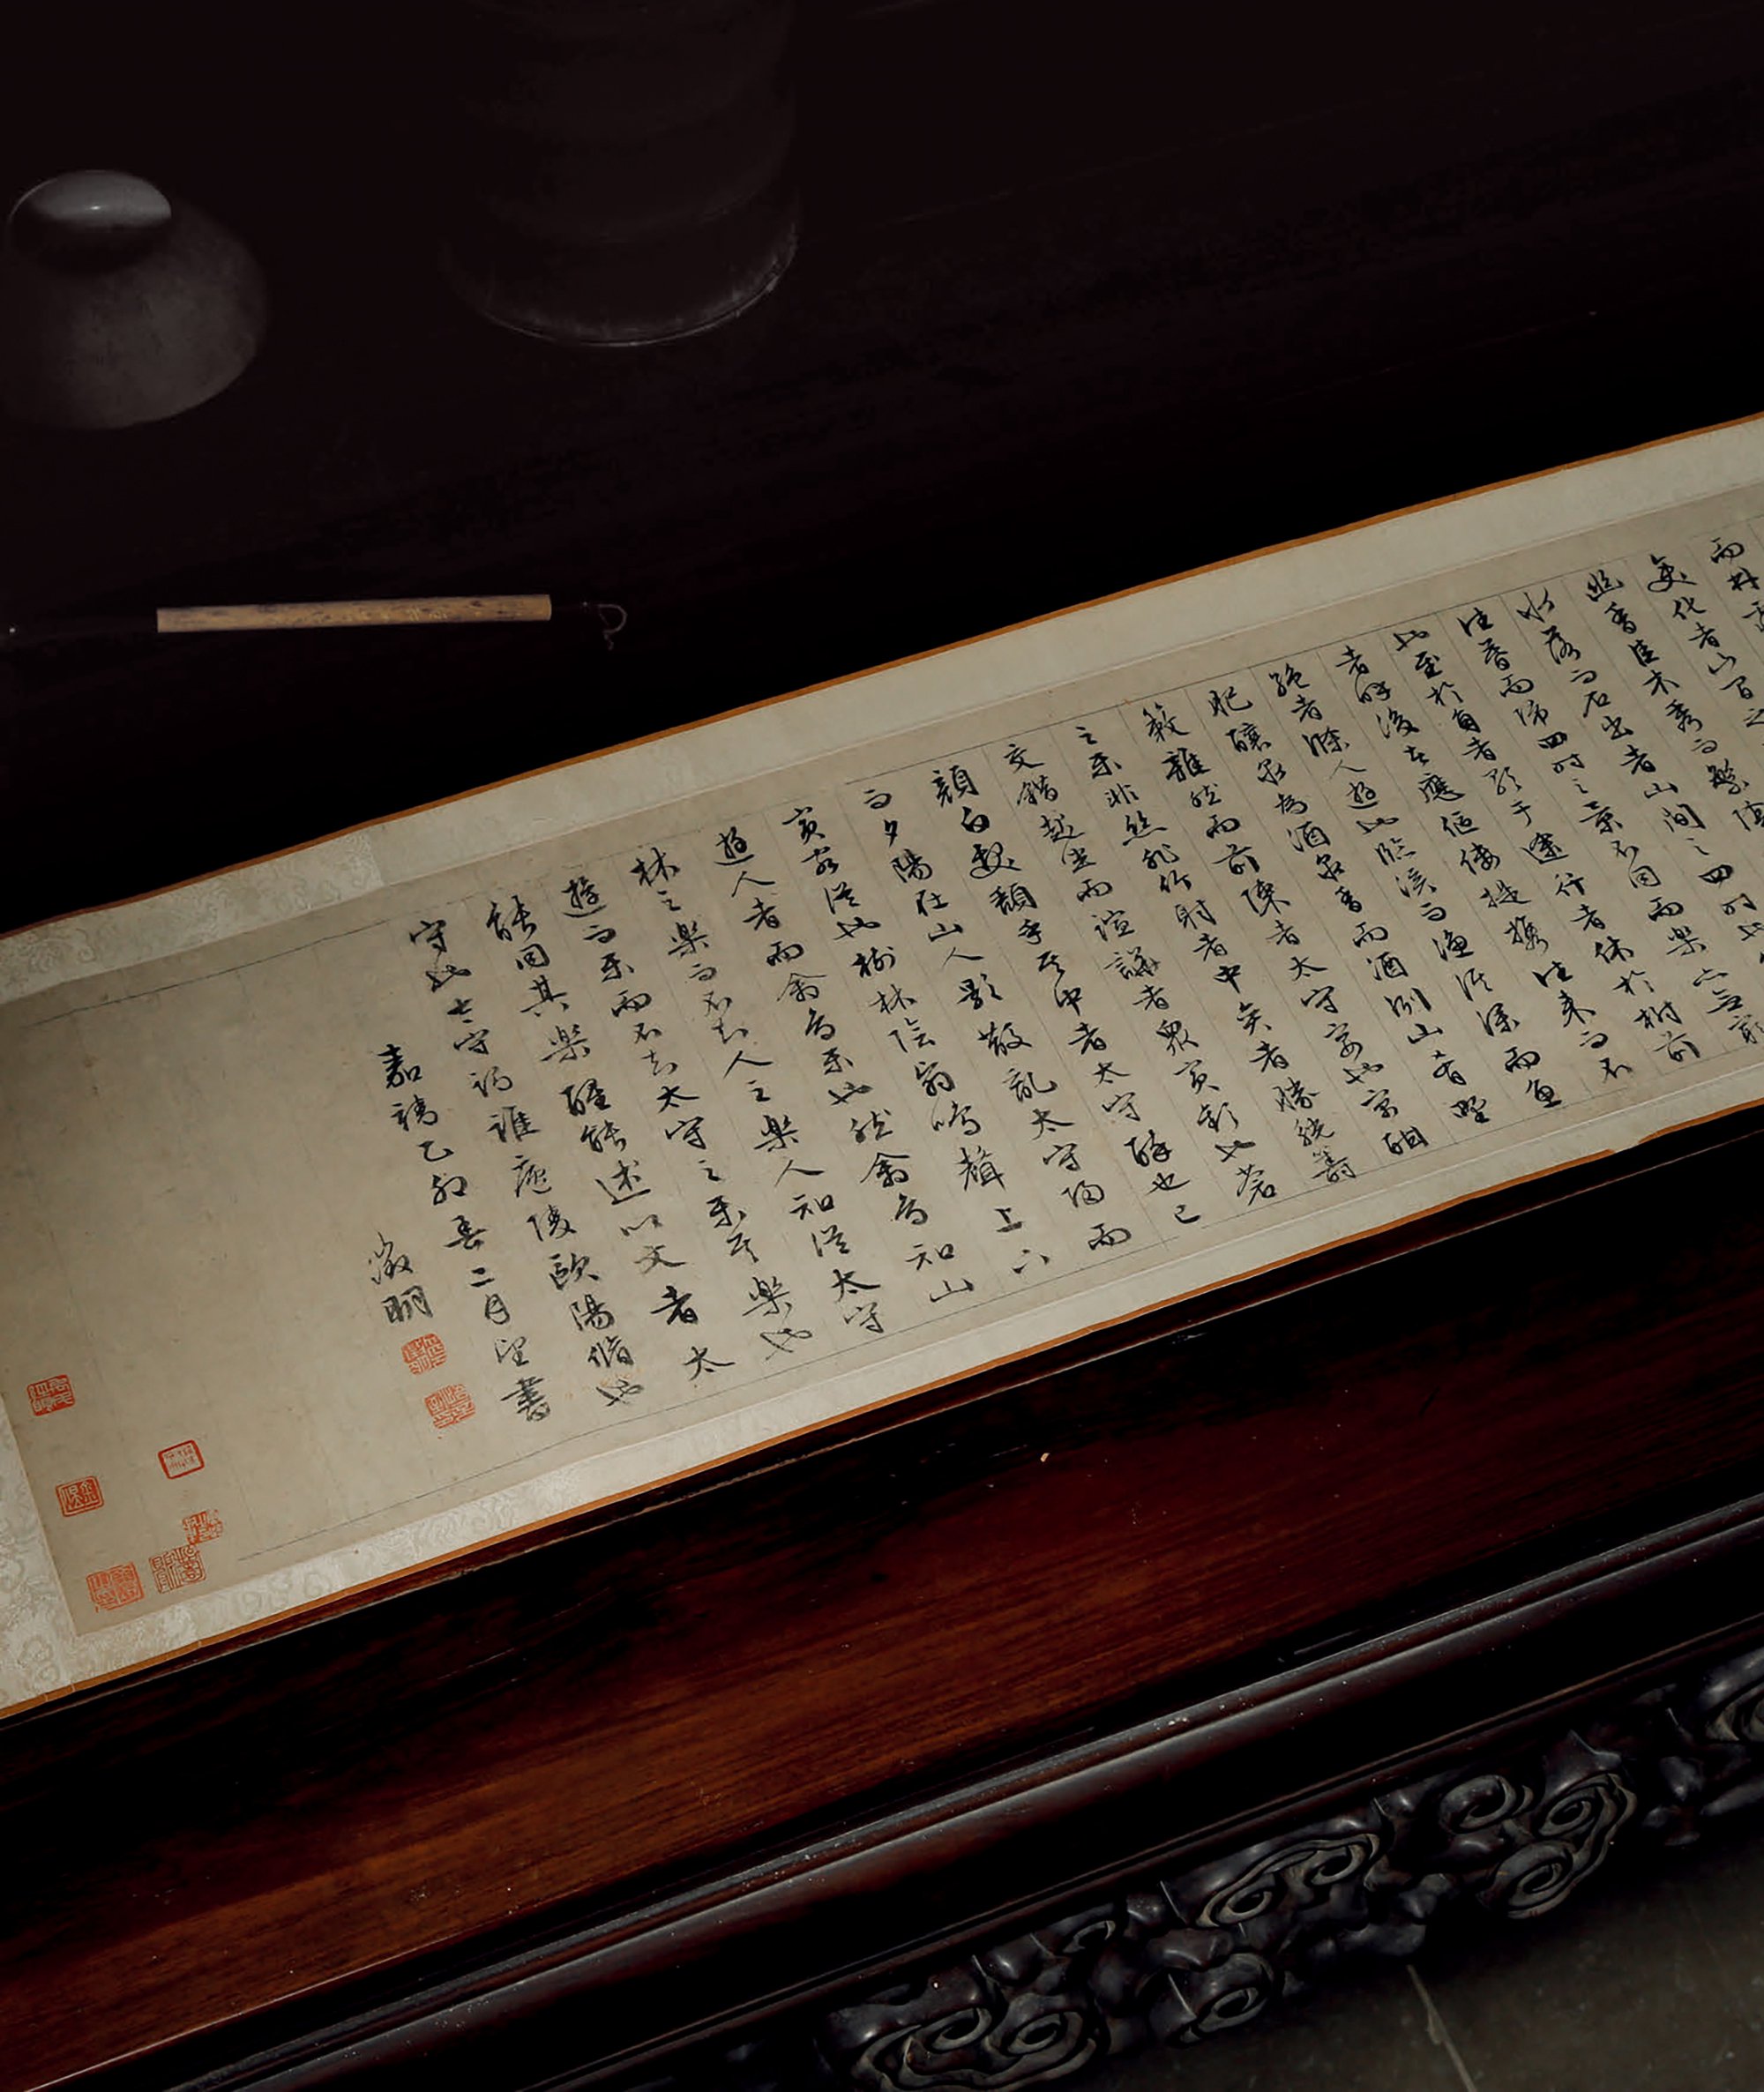 而林霏
變化者山間之
幽香佳木秀而繁陰
水落而石出者山間之四時也
往暮而歸四時之景不同而樂亦無窮
也至於負者歌于途行者休於樹前
者呼後者應傴僂提攜往來而不
絕者滁人遊也臨溪而漁溪深而魚
肥釀泉為酒泉香而酒冽山肴野
蔌雜然而前陳者太守宴也宴酣
之樂非絲非竹射者中奕者勝觥籌
交錯起坐而諠譁者眾賓歡也蒼
顏白髮頹乎其中者太守醉也已
而夕陽在山人影散亂太守歸而
賓客從也樹林陰翳鳴聲上下
遊人去而禽鳥樂也然禽鳥知山
林之樂而不知人之樂人知從太守
遊而樂而不知太守之樂其樂也
能同其樂醒能述以文者太
守也太守謂誰廬陵歐陽脩也
嘉靖乙卯春二月望書
徵明